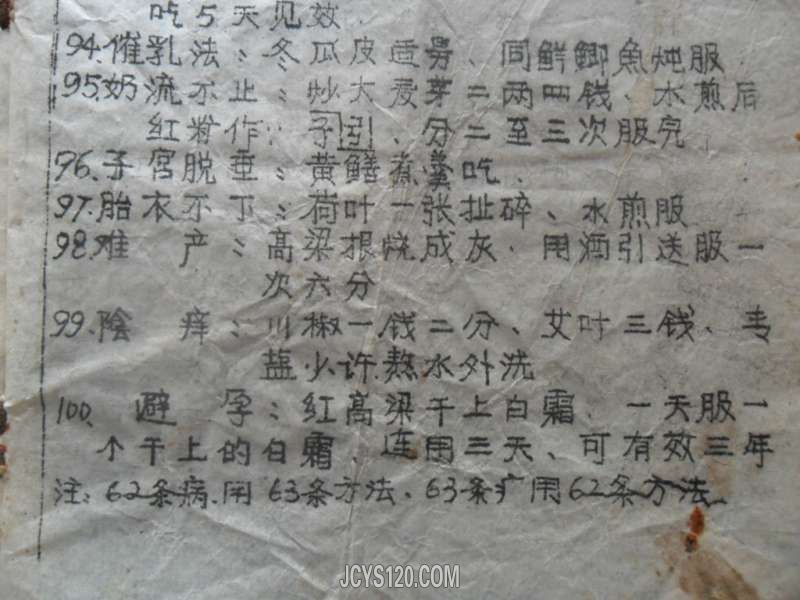 吃5天见效.
94.催乳法:冬瓜皮适另、同鲜鲫魚炖服
95.奶流不止:炒大麦芽二两四钱、水煎后
红粉作:子引、分二至三次服完
96.子宫脱垂:黄鳝煮羹吃.
97.胎衣不下:荷叶一张扯碎、水煎服
98.难 产:高梁根烧成灰.用酒引送服一
次六分
99.陰 痒:川椒一钱二分、艾叶三钱、专
盐少许熬水外洗
100.避 孕:红高梁干上白霜.一天服一
个干上的白霜、连用三天、可有效三年
注:62条病.用63条方法.63条疒用62条方法.
JCYS120.COM